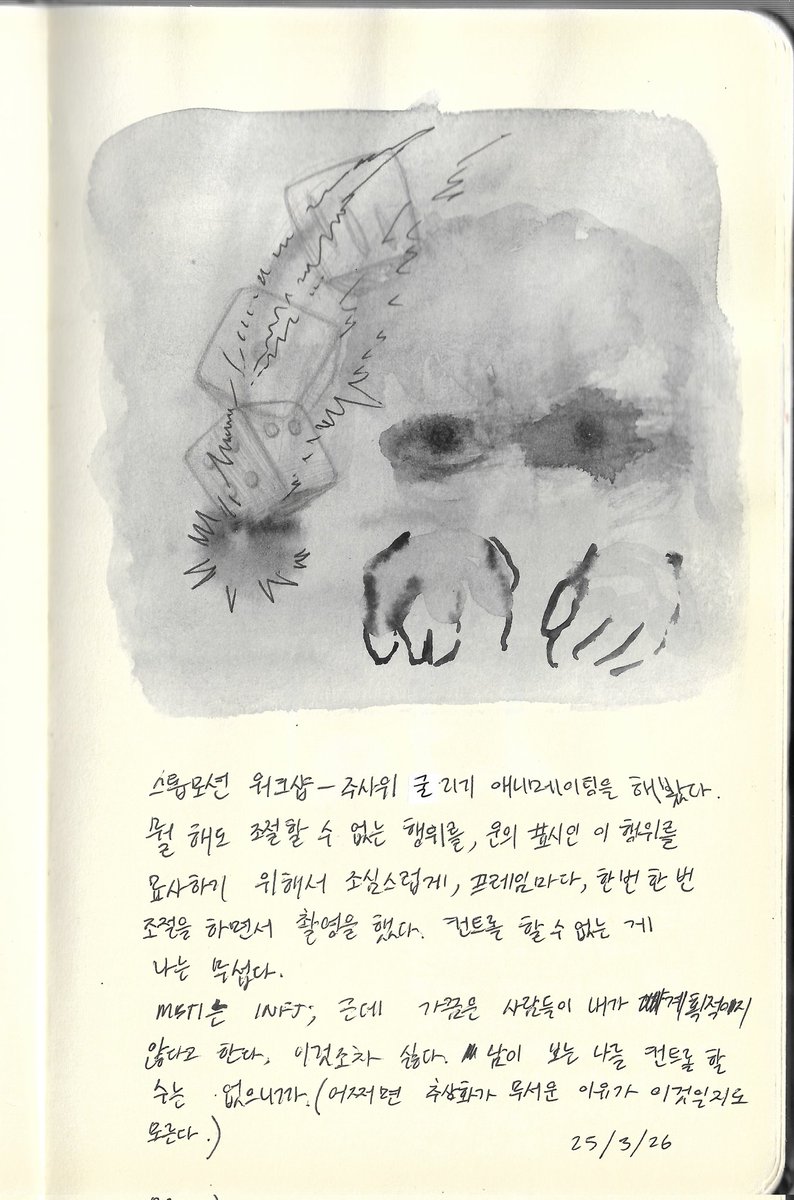 스톱모션 워크샵 – 주사위 굴리기 애니메이팅을 해봤다.
뭘 해도 조절할 수 없는 행위를, 운의 표시인 이 행위를
묘사하기 위해서 조심스럽게, 프레임마다, 한번 한 번
조절을 하면서 촬영을 했다. 컨트롤 할 수 없는 게
나는 무섭다.
MBTI는 INFJ; 근데 가끔은 사람들이 내가 계획적이지
않다고 한다, 이것조차 싫다. 남이 보는 나를 컨트롤 할
수는 없으니까. (어쩌면 추상화가 무서운 이유가 이것일지도
모른다.)
25/3/26